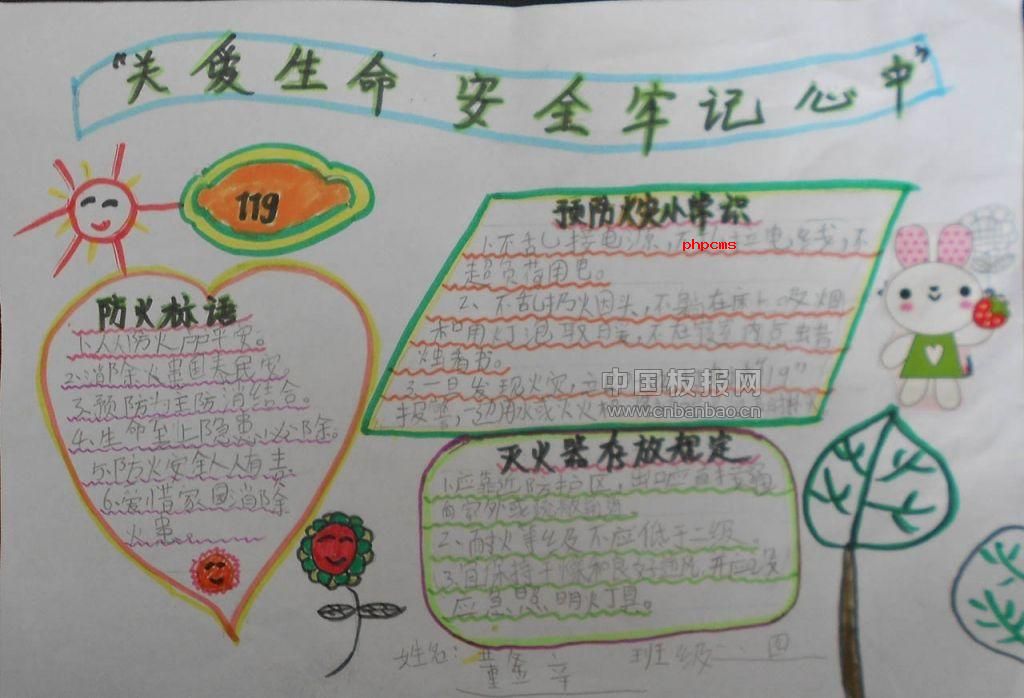 “关爱生命 安全牢记心中”
119
防火标语
1.人人防火户户平安。
2.消除火患国泰民安。
3.预防为主防消结合。
4.生命至上隐患必除。
5.防火安全人人有责
6.爱惜家园消除
火患……
预防火灾小常识
1.不乱接电源,不 电线,不
phpcms
超负荷用电。
2、不乱扔火因头,不躺在床上吸烟
和用灯泡取暖,不在寝室内点蜡
烛看书。
3.一旦发现火灾,立 “119”
报警,一边用水或灭火
中国板报网
www.cnbanbao.cn
灭火器存放规定
1.应靠近防护区,出口应直接通
向室外或疏散通道。
2、耐火等级不应低于二级。
3.宜保持干燥和良好通风,并应设
应急照明灯具。
姓名:董金 班级:一、四